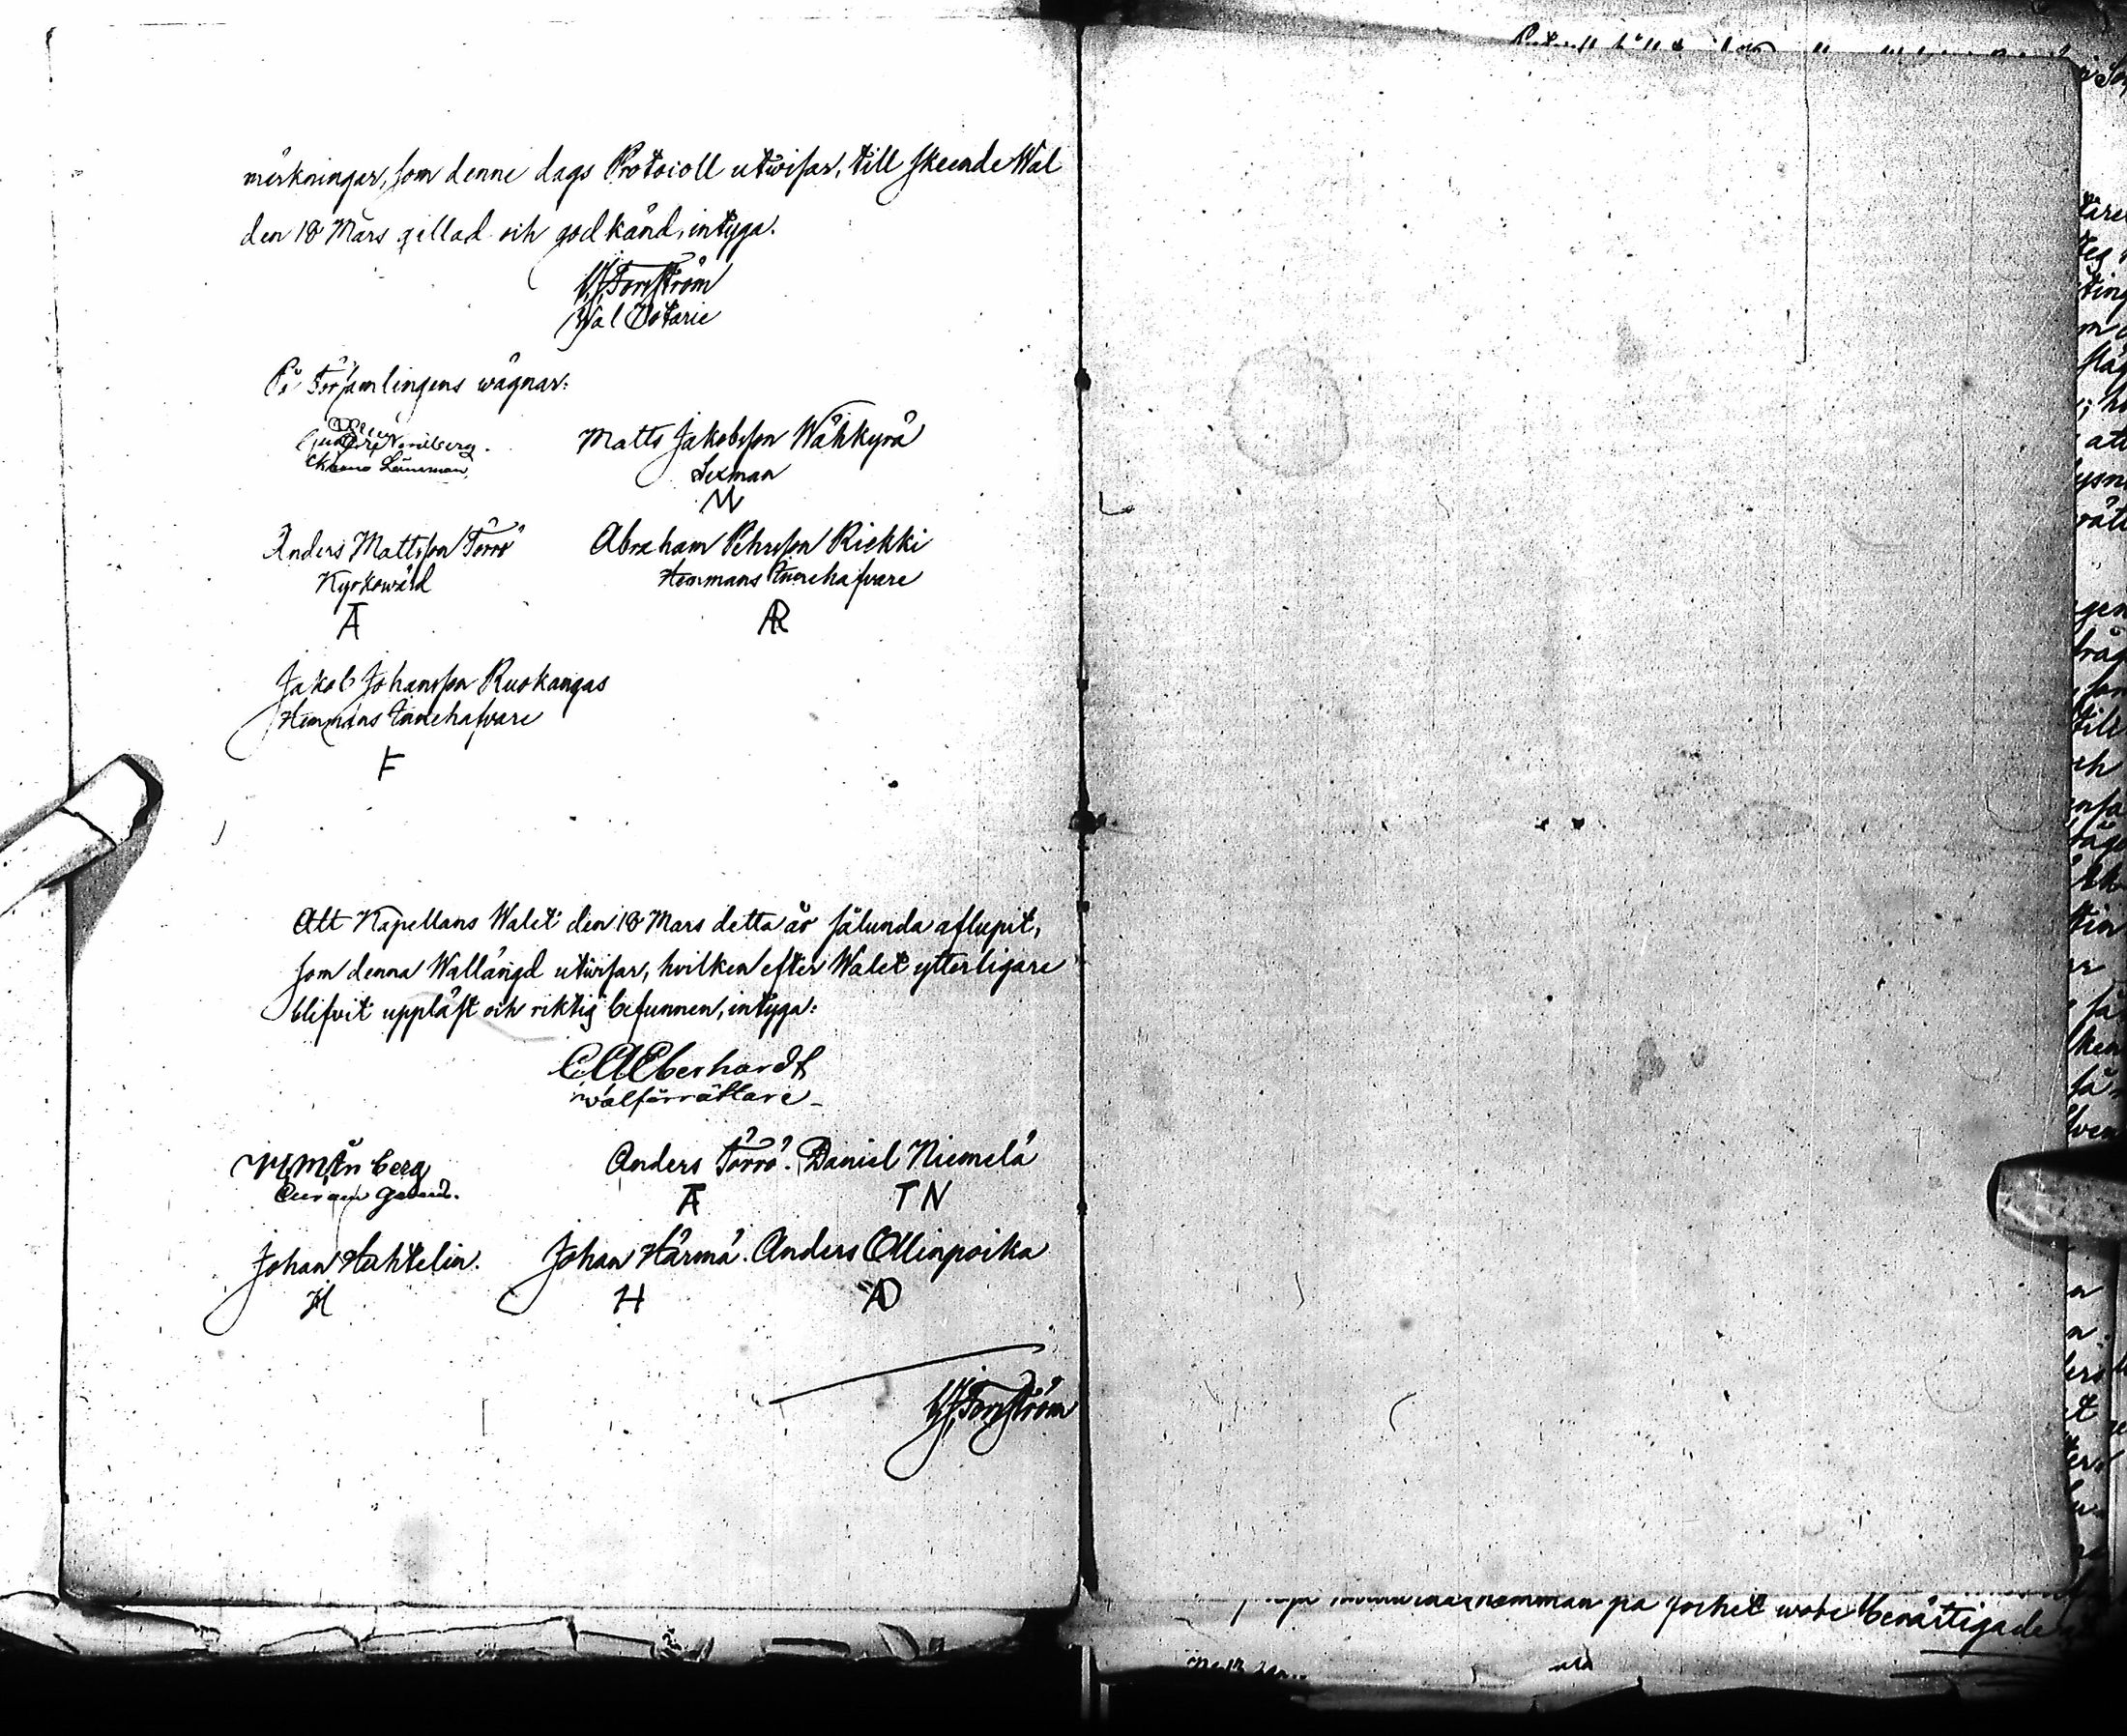 märkningar, som denne dags Protocoll utwisar, till skeende Wal
den 18 Mars gillad och godkänd, intyga.
Forsström
Wal Notarie
På Församlingens wägnar:
Nordberg.
Länsman
Matts Jakobsson Wähkyrä
Sexman
Anders Mattsson Törrö
Kyrkowärd
Abraham Pehrsson Riekki
Hemmans Innehafvare
AR
Jakob Johansson Ruokangas
Hemmans Innehafvare
F
Att Kapellans Walet den 18 Mars detta år sålunda aflupit,
som denna Wallängd utwisar, hvilken efter Walet ytterligare
blifvit uppläst och riktig befunnen, intyga:
C A Eberhardt
Walförrättare
Anders Törrö. Daniel Niemelä
A TN
Johan Huhtelin. Johan Härmä. Anders Ollinpoika
H AO
Forsström
på sockne wobe berättigade